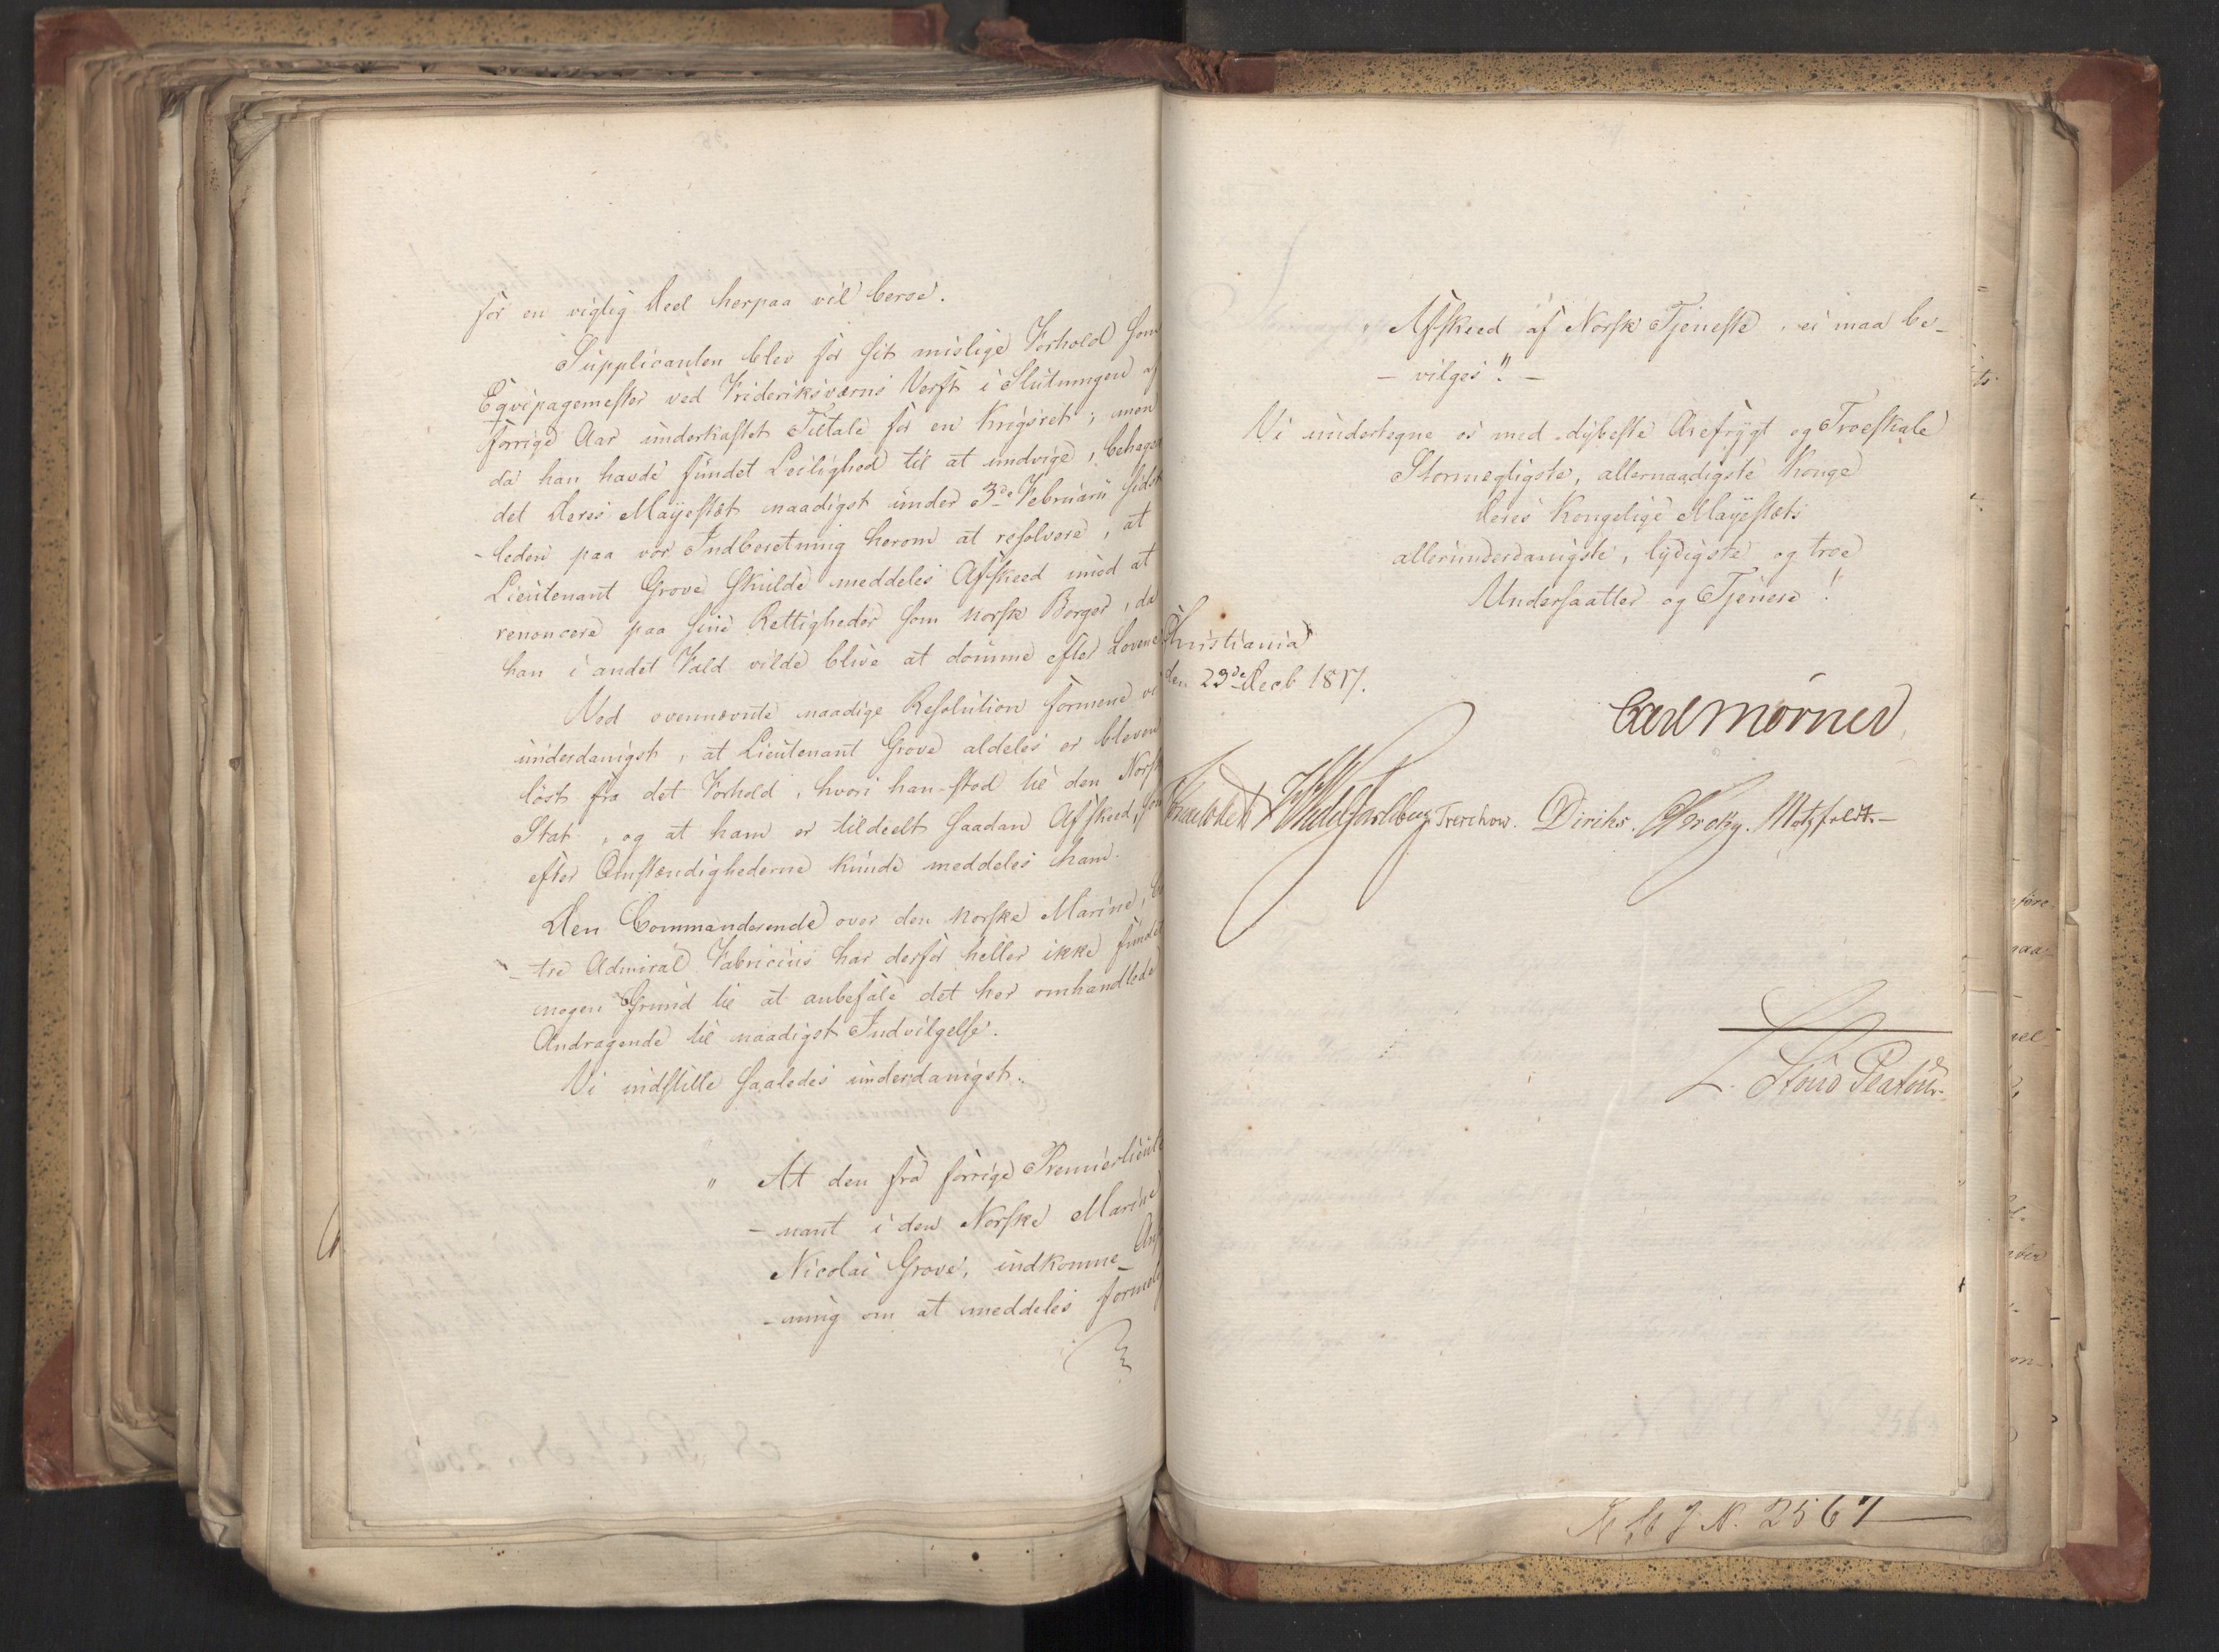 for en vigtig Deel herpaa vil beroe.
Supplicanten blev for sit mislige Forhold som
Eqvipagemester ved Frideriksværns Verft i Slutningen af
forrige Aar underkastet Tiltale for en Krigsret; men
da han havde fundet Leilighed til at undvige, behagede
det Deres Majestæt naadigst under 3de Februarii sidst-
-leden paa vor Indberetning herom at resolvere, at
Lieutenant Grove skulde meddeles Afskeed imod at
renoncere paa sine Rettigheder som norsk Borger, da
han i andet Fald vilde blive at dømme efter Lovene
Ved ovennævnte naadige Resolution formene vi
underdanigst, at Lieutenant Grove aldeles er bleven
løst fra det Forhold, hvori han stod til den Norske
Stat, og at ham er tildeelt saadan Afskeed, som
efter Omstændighederne kunde meddeles ham.
Den Commanderende over den norske Marine, Con-
-tre Admiral Fabricius har derfor heller ikke fundet
nogen Grund til at anbefale det her omhandlede
Andragende til naadigst Indvilgelse.
Vi indstille saaledes underdanigst:
" At den fra forrige Premierlieute-
-nant i den Norske Marine
Nicolai Grove, indkomne Ansøg-
-ning om at meddeles formelig
" Afskeed af Norsk Tjeneste, ei maa be-
- vilges". -
Vi undertegne os med dybeste Ærefrygt og Troeskab
Stormegtigste, allernaadigste Konge
Deres Kongelige Majestæts
allerunderdanigste, lydigste og troe
Undersaatter og Tjenere!
Christiania
den 23de Decb 1817.
Carl Mörner
WedelJarlsberg Treschow. Diriks. Motzfeldt.-
N. 2567